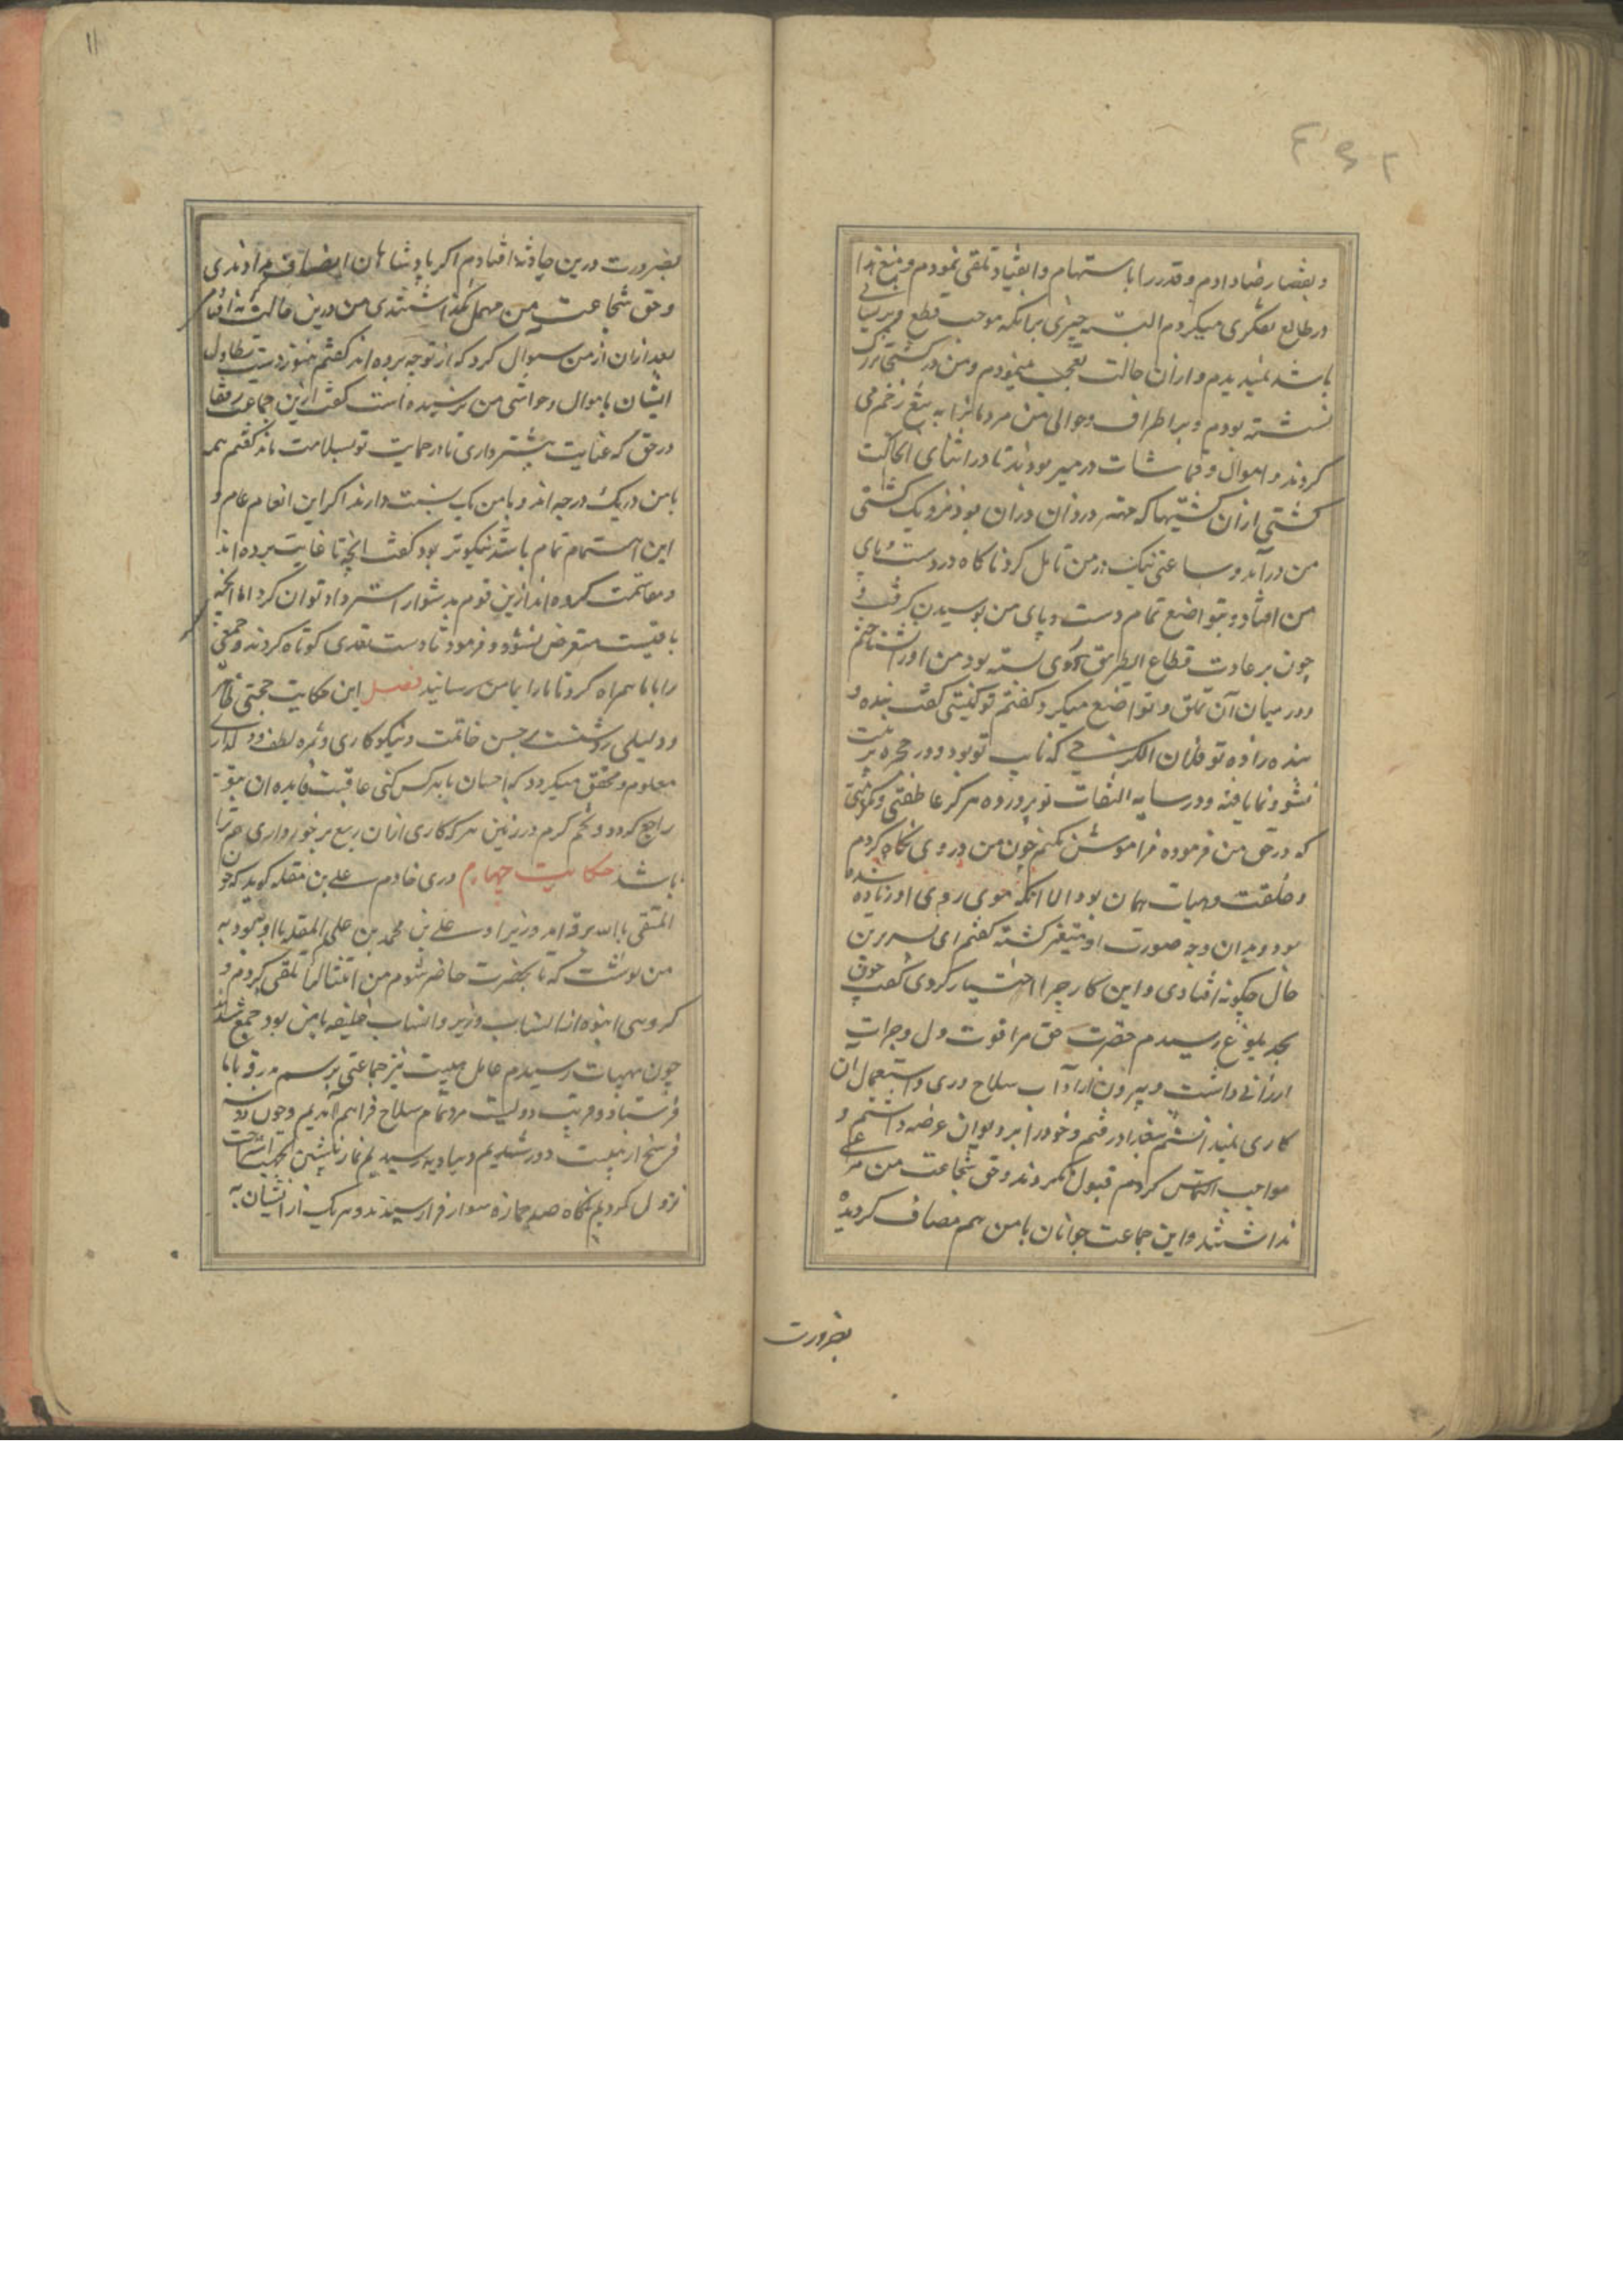 و بقضا رضا دادم و قدر را باستهام و انقیاد تلقی نمودم و منع
در طالع تفکری میکردم البته چیزی برانکه موجب قطع
باشد نمیدیدم و ازان حالت تعجب مینمودم و من در کشتی بزرک
نشسته بودم و بر اطراف و حوالی من مردمانرا به تیغ زخم می
کردند و اموال و قماشات در میر بودند تا در اثنای انحالت
کشتی ازان کشتیها که مهتر دزدان دران بود نزدیک کشتی
من درآمد و ساعتی نیک در من تامل کرد ناکاه در دست و پای
من افتاد و بتواضع تمام دست و پای من بوسیدن کرفت و
چون بر عادت قطاع الطریق روی بسته بود من او را نشناختم
و در میان آن تملق و تواضع میکرد گفتم تو کیستی گفت بنده و
بنده زاده تو فلان الکرخی که نایب تو بود و در حجره تربیت
نشو و نما یافته و در سایه التفات تو پرورده هرکز عاطفتی و مکرمتی
که در حق من فرموده فراموش نکنم چون من در وی نکاه کردم
و خلقت و هیات همان بود الا انکه موی روی او زیاده شده
بود و بدان وجه صورت او متغیر کشته گفتم ای پسر درین
حال چکونه افتادی و این کار چرا اختیار کردی گفت چون
بحد بلوغ رسیدم حضرت حق مرا قوت دل و جرات
ارزانی داشت و بیرون از آداب سلاح وری و استعمال ان
کاری نمیدانستم ببغداد رفتم و خود را بر دیوان عرضه داشتم و
مواجب التماس کردم قبول نکردند و حق شجاعت من مرعی
نداشتند و این جماعت جوانان با من هم مصاف کردیده
بضرورت
۱۱
بضرورت درین حادثه افتادم اکر پادشاهان انصاف من دادندی
و حق شجاعت من مهمل نکذاشتندی من درین حالت نه افتادم
بعد ازان از من سوال کرد که از تو چه برده اند گفتم هنوز دست تطاول
ایشان باموال و حواشی من نرسیده است گفت ازین جماعت رفقا
در حق که عنایت بیشتر داری تا در حمایت تو بسلامت ماند گفتم همه
با من در یک درجه اند و با من یک نسبت دارند اکر این انعام عام و
این اهتمام تمام باشد نیکوتر بود گفت انچه تا غایت برده اند
و مقاسمت کرده اند ازین قوم بدشوار استرداد توان کرد اما انچه
باقیست متعرض نشوند و فرمود تا دست تعدی کوتاه کردند و جمعی
را با ما همراه کرد تا ما را بامن رسانید فصل این حکایت حجتی ظاهر
و دلیلی روشنست بر حسن خاتمت و نیکوکاری و ثمره لطف و
معلوم و محقق میکردد که احسان با هر کس کنی عاقبت فایده ان بتو
راجع کردد و تخم کرم در زمین هر که کاری ازان ریع برخورداری هم ترا
باشد حکایت چهارم دری خادم علی بن مقله کوید که چون
المتقی بالله برقه امد و زیر او علی بن محمد بن علی المقله با او بود به
من نوشت که تا بحضرت حاضر شوم من امتثالها تلقی کردم و
کروهی انبوه از انساب وزیر و انساب خلیفه با من بود جمع شدند
چون بهیت رسیدم عامل هیت نیز جماعتی برسم بدرقه با ما
فرستاد و قریب دویست مرد تمام سلاح فراهم آمدیم و چون
فرسخ از هیت دور شدیم و ببادیه رسیدیم نماز پیشین بجهت استراحت
نزول کردیم ناکاه صد جمازه سوار فرا رسیدند و هر یک از ایشان به